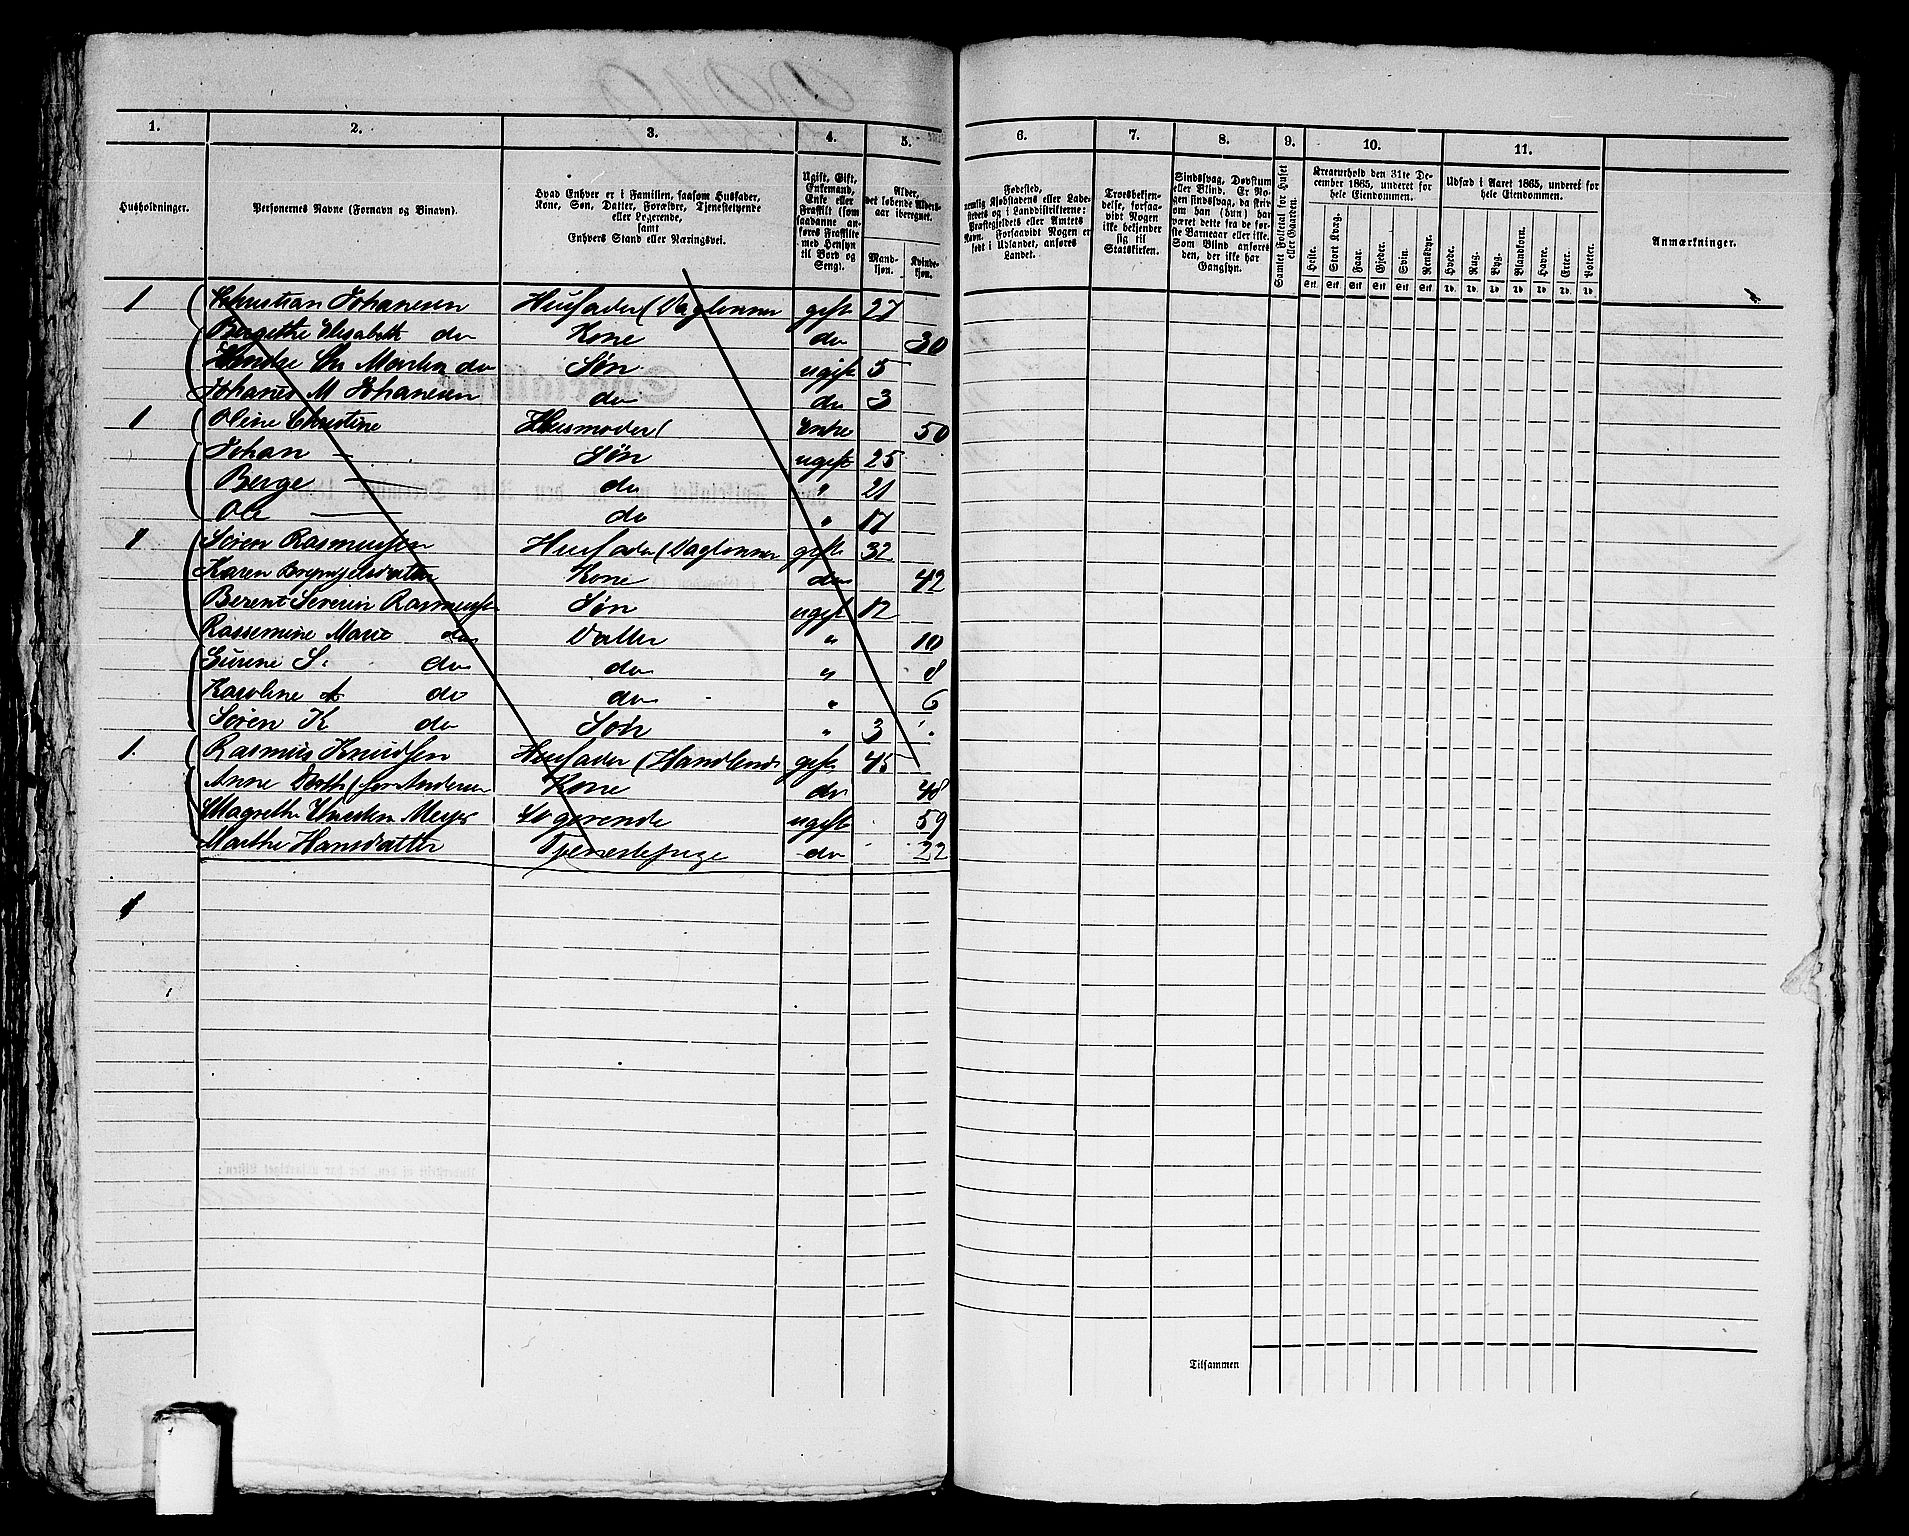 1. 2. 3. 4. 5. 6. 7. 8. 9. 10. 11.
Husholdninger.
Personernes Navne (Fornavn og Binavn).
Hvad Enhver er i Familien, saasom Husfader,
Kone, Søn, Datter, Forældre, Tjenestetyende
eller Logerende,
samt
Enhvers Stand eller Næringsvei.
Ugift, Gift,
Enkemand,
Enke eller
Fraskilt (som
saadanne an-
føres Fraskilte
med Hensyn
til Bord og
Seng).
Alder,
det løbende Alders-
aar iberegnet.
Mand-
kjøn.
Kvinde-
kjøn.
Fødested,
nemlig Kjøbstadens eller Lade-
stedets og i Landdistrikterne:
Præstegjeldets eller Amtets
Navn. Forsaavidt Nogen er
født i Udlandet, anføres
Landet.
Troesbekjen-
delse, forsaa-
vidt Nogen
ikke bekjender
sig til
Statskirken.
Sindssvag, Døvstum
eller Blind. Er No-
gen sindssvag, da skriv
om han (hun) har
været dette fra de før-
ste Barneaar eller ikke.
Som Blind anføres
den, der ikke har
Gangsyn.
Samlet Folketal for Huset
eller Gaarden.
Kreaturhold den 31te De-
cember 1865, underet for
hele Eiendommen.
Heste. Stort Kvæg. Faar. Gjeder. Svin. Rensdyr.
Stk. Stk. Stk. Stk. Stk. Stk.
Udsæd i Aaret 1865, underet for
hele Eiendommen.
Hvede. Rug. Byg. Blandkorn. Havre. Erter. Poteter.
Td. Td. Td. Td. Td. Td. Td.
Anmærkninger.
1 Christian Johanesen Husfader (Daglønner gift 27
Bergethe Elisabeth do Kone do 30
Chr Martin do Søn ugift 5
Johanes M Johanesen do do 3
1 Oline Christine Husmoder ( Enke 50
Johan — Søn ugift 25
Berge — do " 21
Ole — do " 17
1 Søren Rasmussen Husfader (Daglønner gift 32
Karen Brynjelsdatter Kone do 42
Berent Severin Rasmuss Søn ugift 12
Rassemine Marie do Datter " 10
Surine S. do do " 8
Karoline A do do " 6
Søren K do Søn " 3
1. Rasmus Knudsen Husfader (Handlende gift 45
Anne Doth (før Andersen Kone do 48
Magrethe Meyer Logerende ugift 59
Marthe Hansdatter Tjenestepige do 22
1
Tilsammen